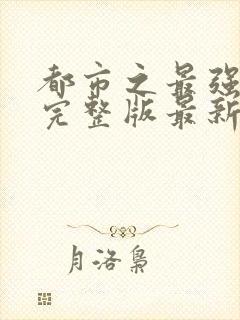 都市之最强
完整版最新
月洛枭